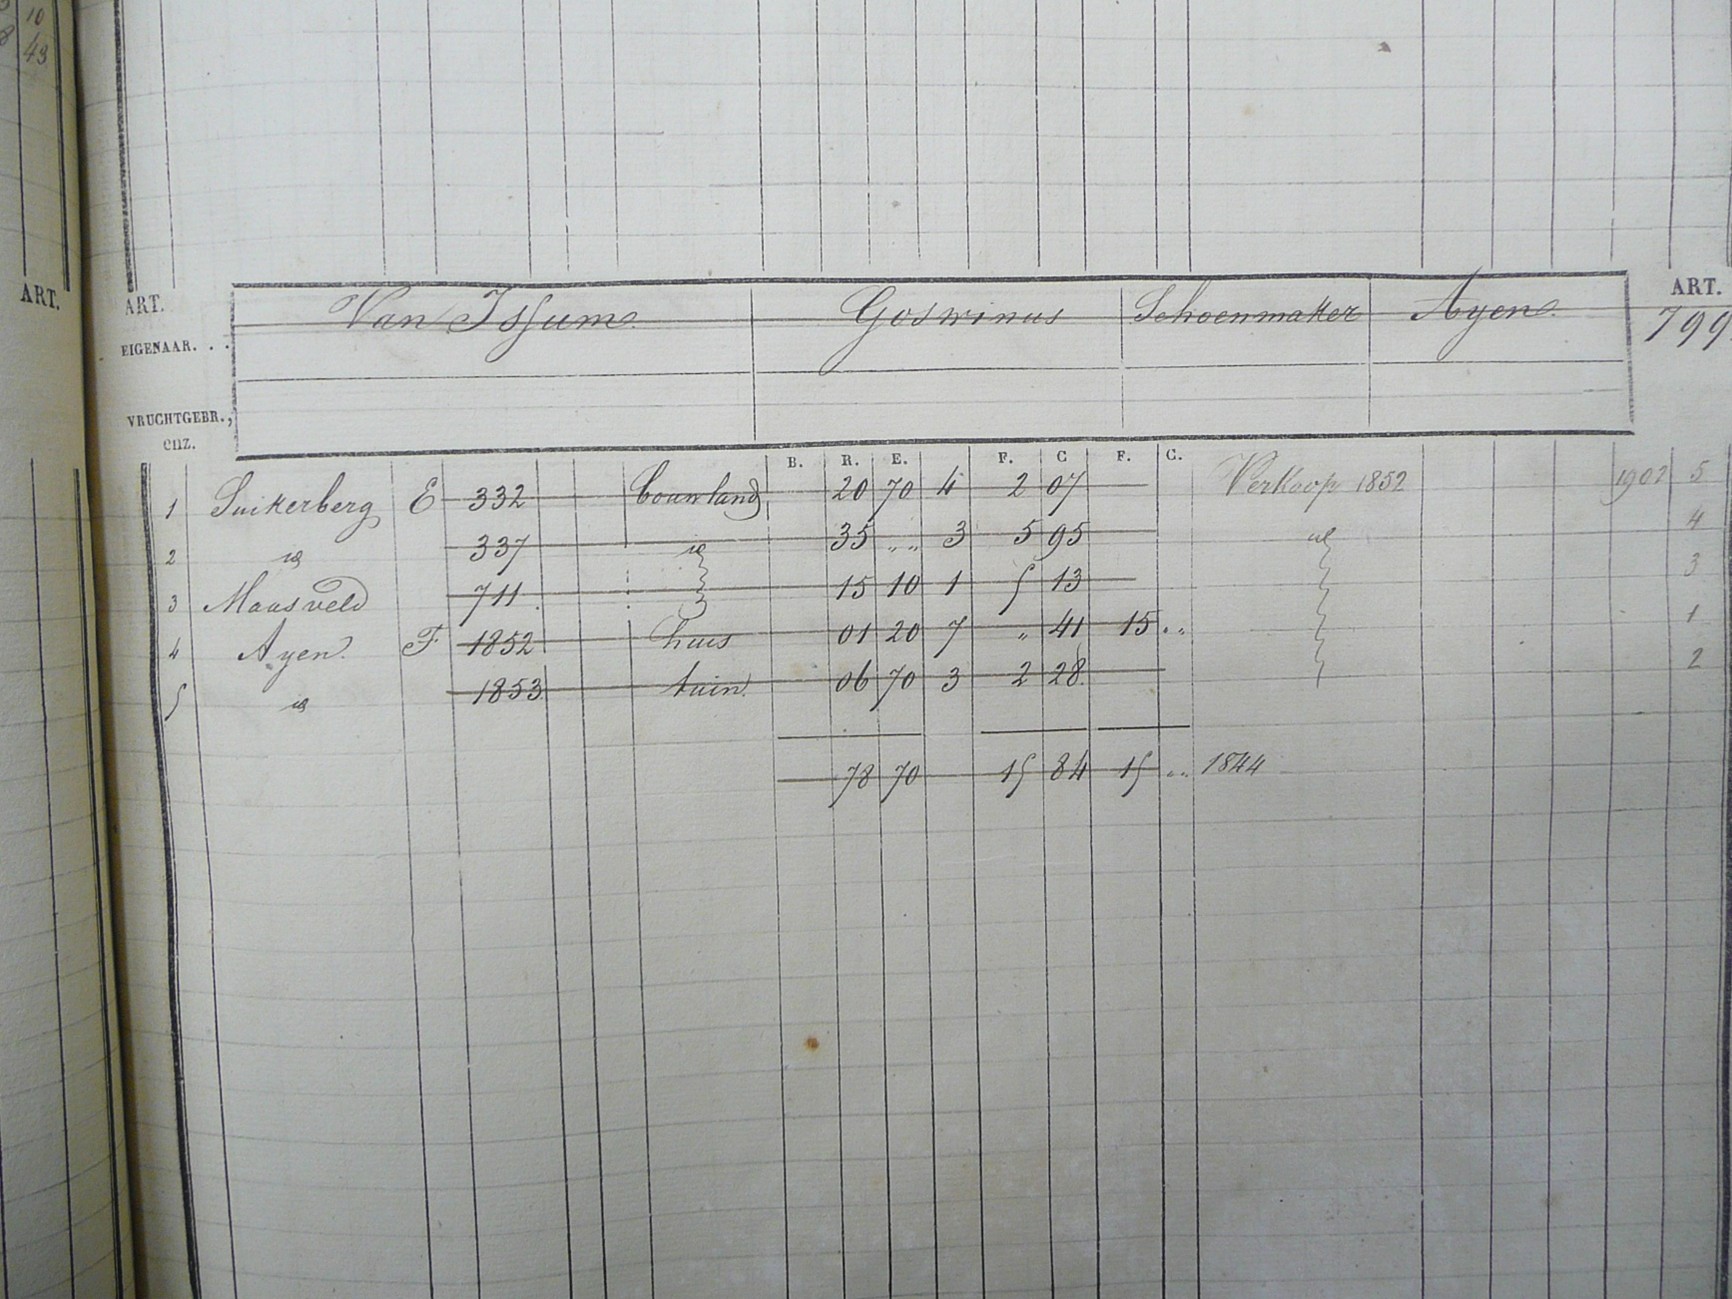 10
8 43
ART.
ART. ART.
EIGENAAR. . . Van Issum Goswinus Schoenmaker Ayen 799
VRUCHTGEBR., enz.
B. R. E. F. C F. C.
1 Suikerberg E 332 bouwland 20 70 4 2 07 Verkoop 1852 1902 5
2 id 337 id 35 „ „ 3 5 95 id 4
3 Maasveld 711 15 10 1 5 13 3
4 Ayen F 1852 huis 01 20 7 „ 41 15 „ 1
5 id 1853 tuin 06 70 3 2 28 2
78 70 15 84 15 „ 1844